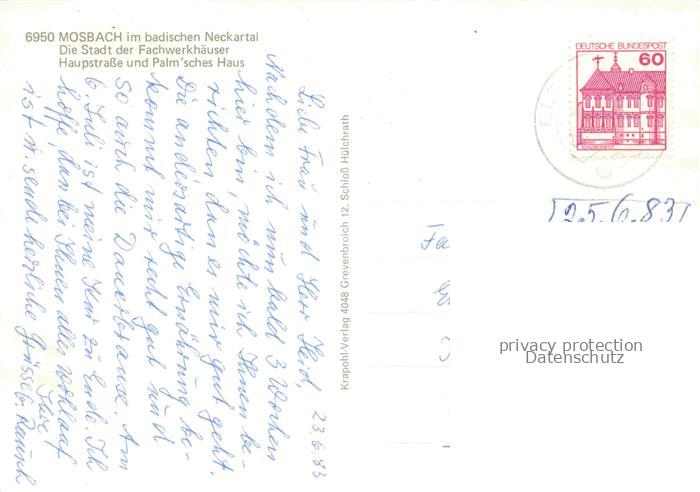 6950 MOSBACH im badischen Neckartal
Die Stadt der Fachwerkhäuser
Hauptstraße und Palm'sches Haus
Liebe Frau und Herr Heid, 23.6.83
Nachdem ich nun bald 3 Wochen
hier bin, möchte ich Ihnen be-
richten dass es mir gut geht.
Die andersartige Ernährung be-
kommt mir recht gut und
so auch die Dauerbrause. Am
6. Juli ist meine Kur zu Ende. Ich
hoffe, dass bei Ihnen alles wohlauf
ist u. sende herzliche Grüsse Ihre
Krapohl-Verlag 4048 Grevenbroich 12, Schloß Hülchrath
DEUTSCHE BUNDESPOST
60
25.6.83
privacy protection
Datenschutz